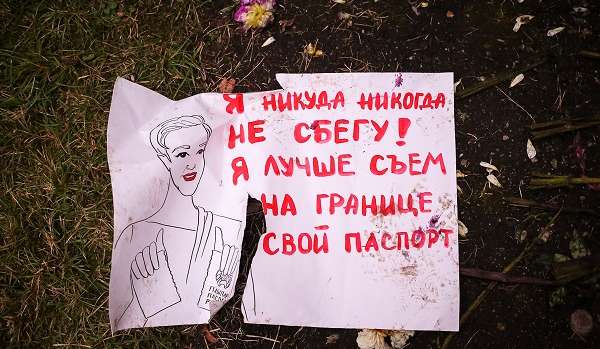 Я НИКУДА НИКОГДА
НЕ СБЕГУ!
Я ЛУЧШЕ СЪЕМ
НА ГРАНИЦЕ
СВОЙ ПАСПОРТ